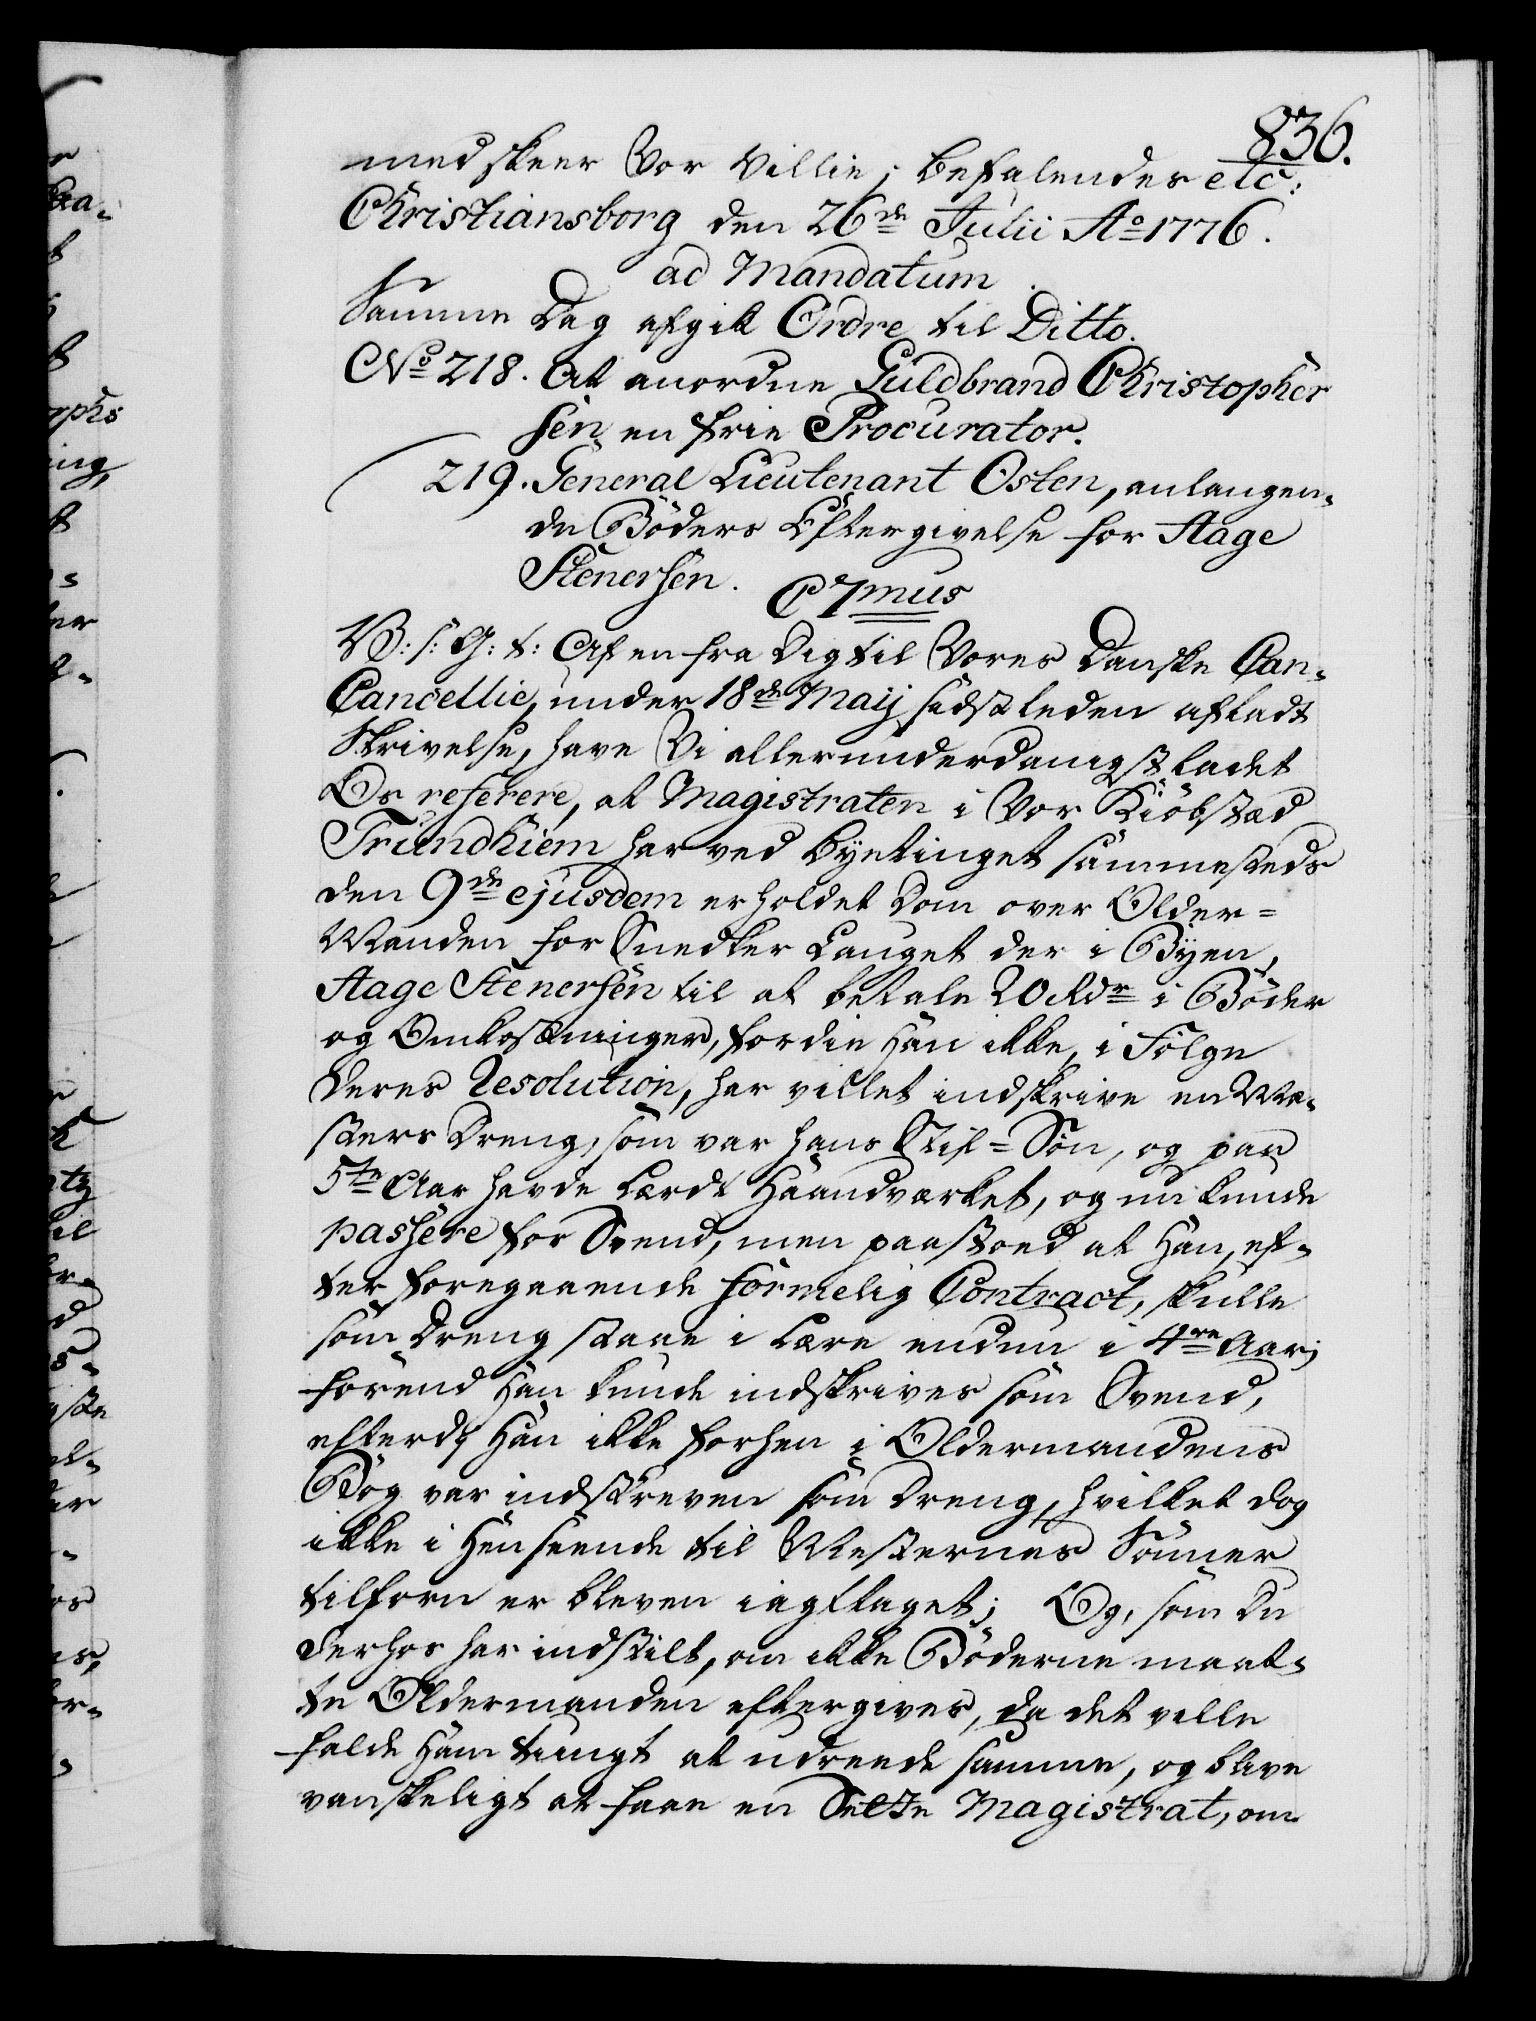 836.
med skeer Vor Villie; befalendes etc:
Christiansborg den 26de Julii Ao 1776.
ad Mandatum
Samme Dag afgik Ordre til Ditto.
No 218. At anordne Guldbrand Christopher
sen en frie Procurator.
219. General Lieutenant Osten, anlangen-
de Böders Eftergivelse for Aage
Stenersen. C 7mus
V: s: G: t: Af en fra Dig til Vores Danske Can-
Cancellie, under 18de Maij sidstleden afladt
Skrivelse, have Vi allerunderdanigst ladet
Os referere, at Magistraten i Vor Kiöbstad
Trundhiem har ved Byetinget sammesteds
den 9de ejusdem erholdet Dom over Older=
Manden for Snedker Lauget der i Byen,
Aage Stenersen til at betale 20 Rdr i Böder
og Omkostninger, fordie Han ikke, i Fölge
Deres Resolution, har villet indskrive en Me-
sters Dreng, som var hans Stif=Sön, og paa
5te Aar havde lærdt Haandværket, og nu kunde
passere for Svend, men paastoed at Han, ef-
ter foregaaende formelig Contract, skulle
som Dreng staae i Lære endnu i 4re Aar;
förend Han kunde indskrives som Svend,
efterdi Han ikke forhen i Oldermandens
Bog var indskreven som Dreng, hvilket dog
ikke i Henseende til Mesternes Sönner
tilforn er bleven iagttaget; Og, som Du
derhos har indstilt, om ikke Böderne maat-
te Oldermanden eftergives, da det ville
falde Ham tungt at udreede samme, og blive
vanskeligt at faae en Sette Magistrat, om